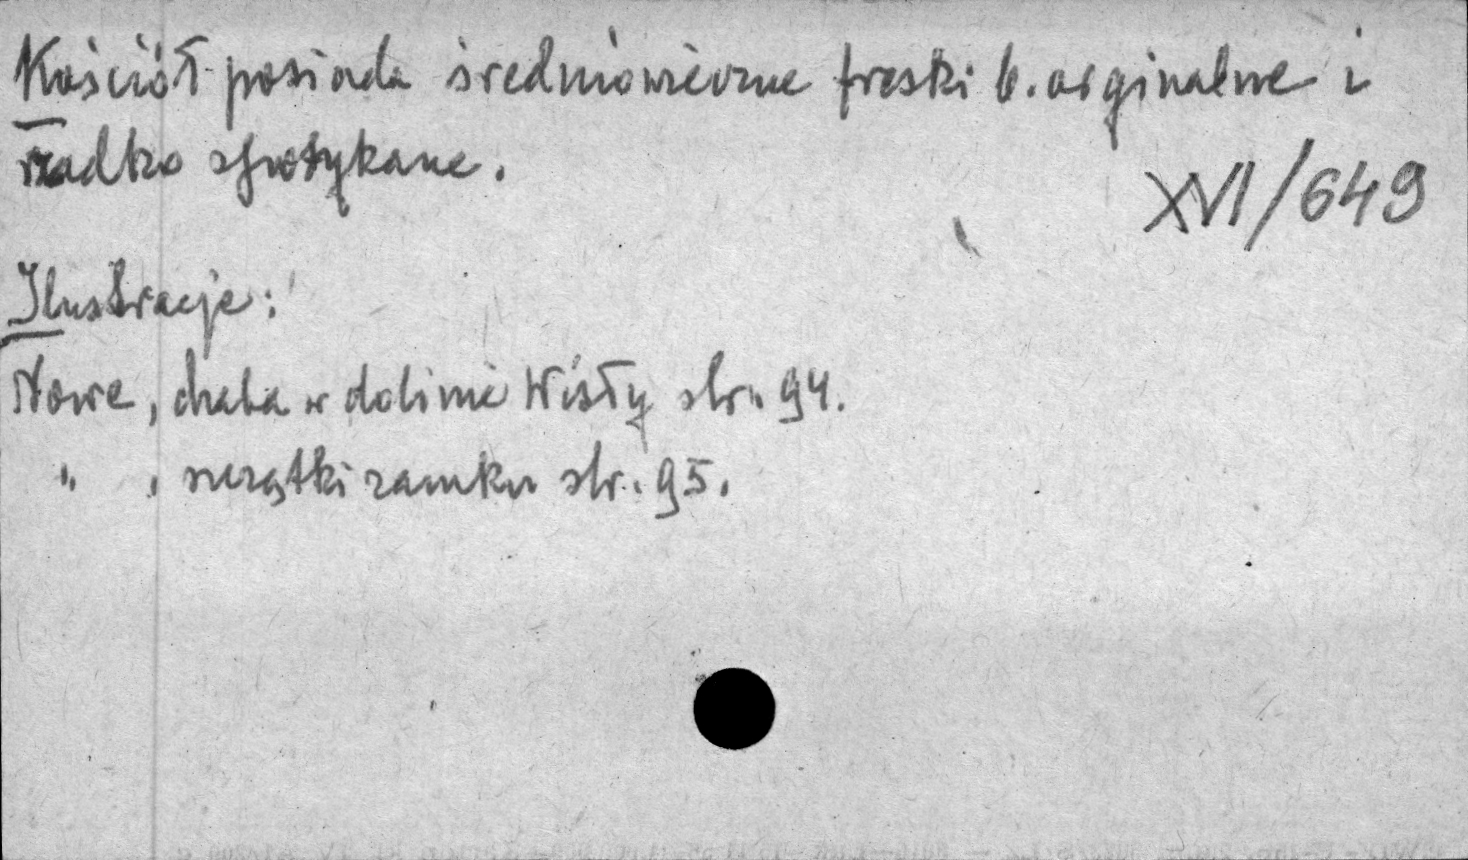 Kościół posiada średniowieczne freski b. orginalne i
rzadko spotykane.
XVI/649
Ilustracje:
Nowe, chata w dolinie Wisły str. 94.
" , szczątki zamku str. 95.